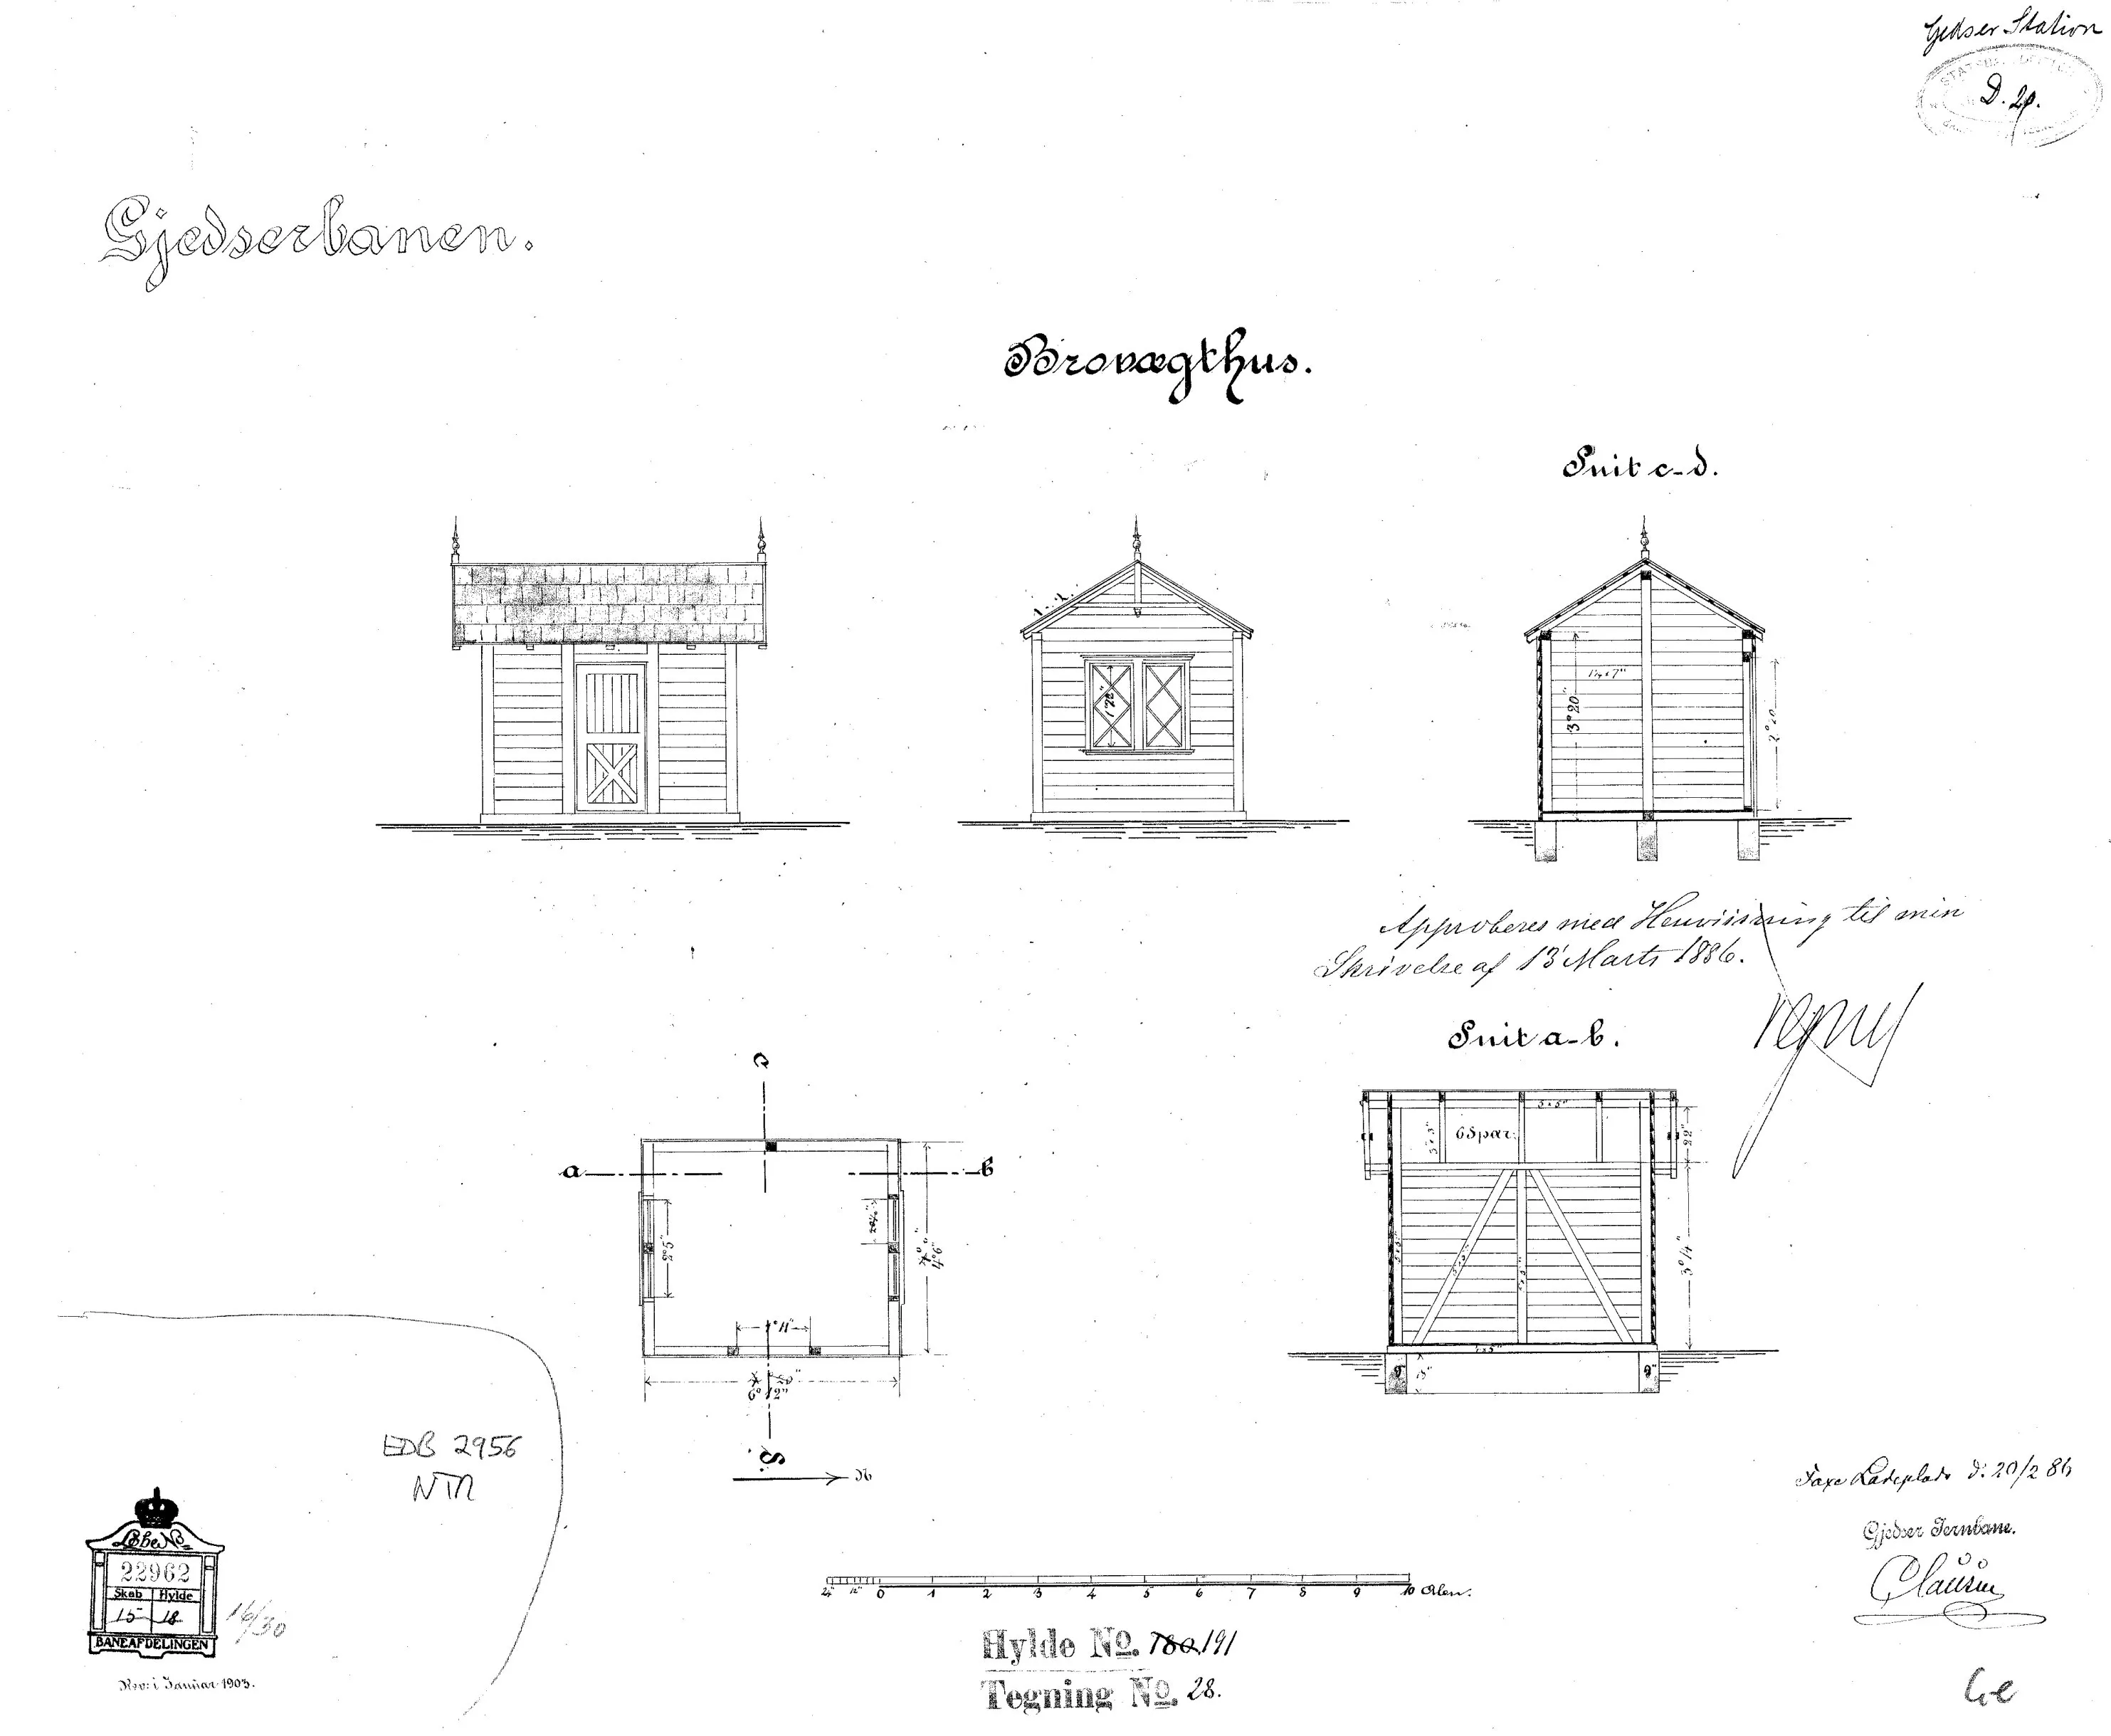 Gedser Station
D. 2p.
Gjedserbanen.
Brovægthus.
Snit c-d.
1¼×7"
3° 20"
2° 20
Approberes med Henviisning til min
Skrivelse af 13' Marts 1886.
Snit a-b.
c
a
b
2° 5"
4° 6"
1° 11"
6° 12"
d.
N
3×3"
5×5"
6 Spar.
22"
3° 14"
5×5"
9"
18"
9"
EDB 2956
NTR
Løbe No
22962
Skab Hylde
15 18
BANEAFDELINGEN
16/30
Rev: i Januar 1903.
Faxe Ladeplads d. 20/2 86
Gjedser Jernbane.
Clausen
24" 12" 0 1 2 3 4 5 6 7 8 9 10 Alen.
Hylde No. 180 191
Tegning No. 28.
Ge